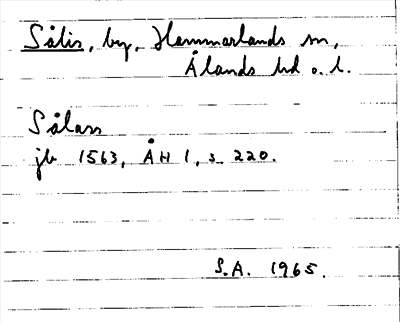 Sålis, by, Hammarlands sn,
Ålands hd o. l.
Sålass
jb 1563, ÅH 1, s. 220.
S.A. 1965.